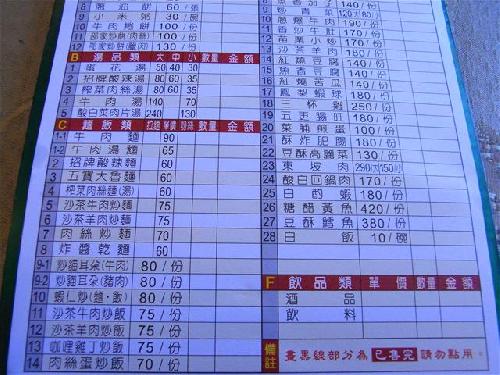 8 蔥油餅 60/張
9 小米粥 30/碗
10 牛肉捲餅 100/份
11 邵家炒餅(肉絲) 100/份
12 邵家炒餅(臘肉) 130/份
B 湯品類 大 中 小 數量 金額
1 蛋花湯 50 40 30
2 招牌酸辣湯 80 60 35
3 榨菜肉絲湯 80 60 35
4 牛肉湯 140 70
5 酸白菜肉片湯 240 130
C 麵飯類 拉麵 單價 數量 金額
1-1 牛肉麵 90
1-2 牛肉湯麵 65
2 招牌酸辣麵 60
3 五寶大魯麵 60
4 榨菜肉絲麵(湯) 60
5 沙茶牛肉炒麵 75
6 沙茶羊肉炒麵 75
7 肉絲炒麵 70
8 炸醬乾麵 60
9-1 炒貓耳朵(牛肉) 80/份
9-2 炒貓耳朵(豬肉) 80/份
10 蝦仁炒(麵、飯) 80/份
11 沙茶牛肉炒飯 75/份
12 沙茶羊肉炒飯 75/份
13 咖哩雞丁炒飯 75/份
14 肉絲蛋炒飯 70/份
140/份
10 蔥爆牛肉 190/份
11 香炒牛肚 170/份
12 苦瓜小炒 170/份
13 沙茶羊肉 180/份
14 紅燒豆腐 140/份
15 魚香豆腐 140/份
16 紅燒苦瓜 140/份
17 鳳梨蝦球 180/份
18 三杯 250/份
19 五更腸旺 180/份
20 菜脯煎蛋 100/份
21 酥炸肥腸 180/份
22 豆酥高麗菜 130/份
23 東坡肉 290(大)150(小)
24 酸白回鍋肉 170/份
25 白灼蝦 180/份
26 糖醋黃魚 420/份
27 豆酥鱈魚 380/份
28 白飯 10/碗
F 飲品類 單價 數量 金額
酒品
飲料
備註 畫黑線部分為 已售完 請勿點用。